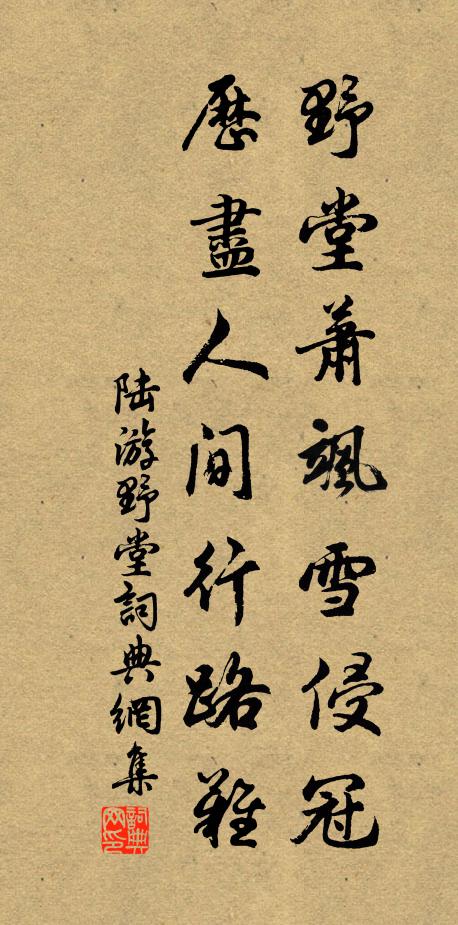 野堂蕭颯雪侵冠
歷盡人間行路難
陆游野堂詞典網集
詞典网印